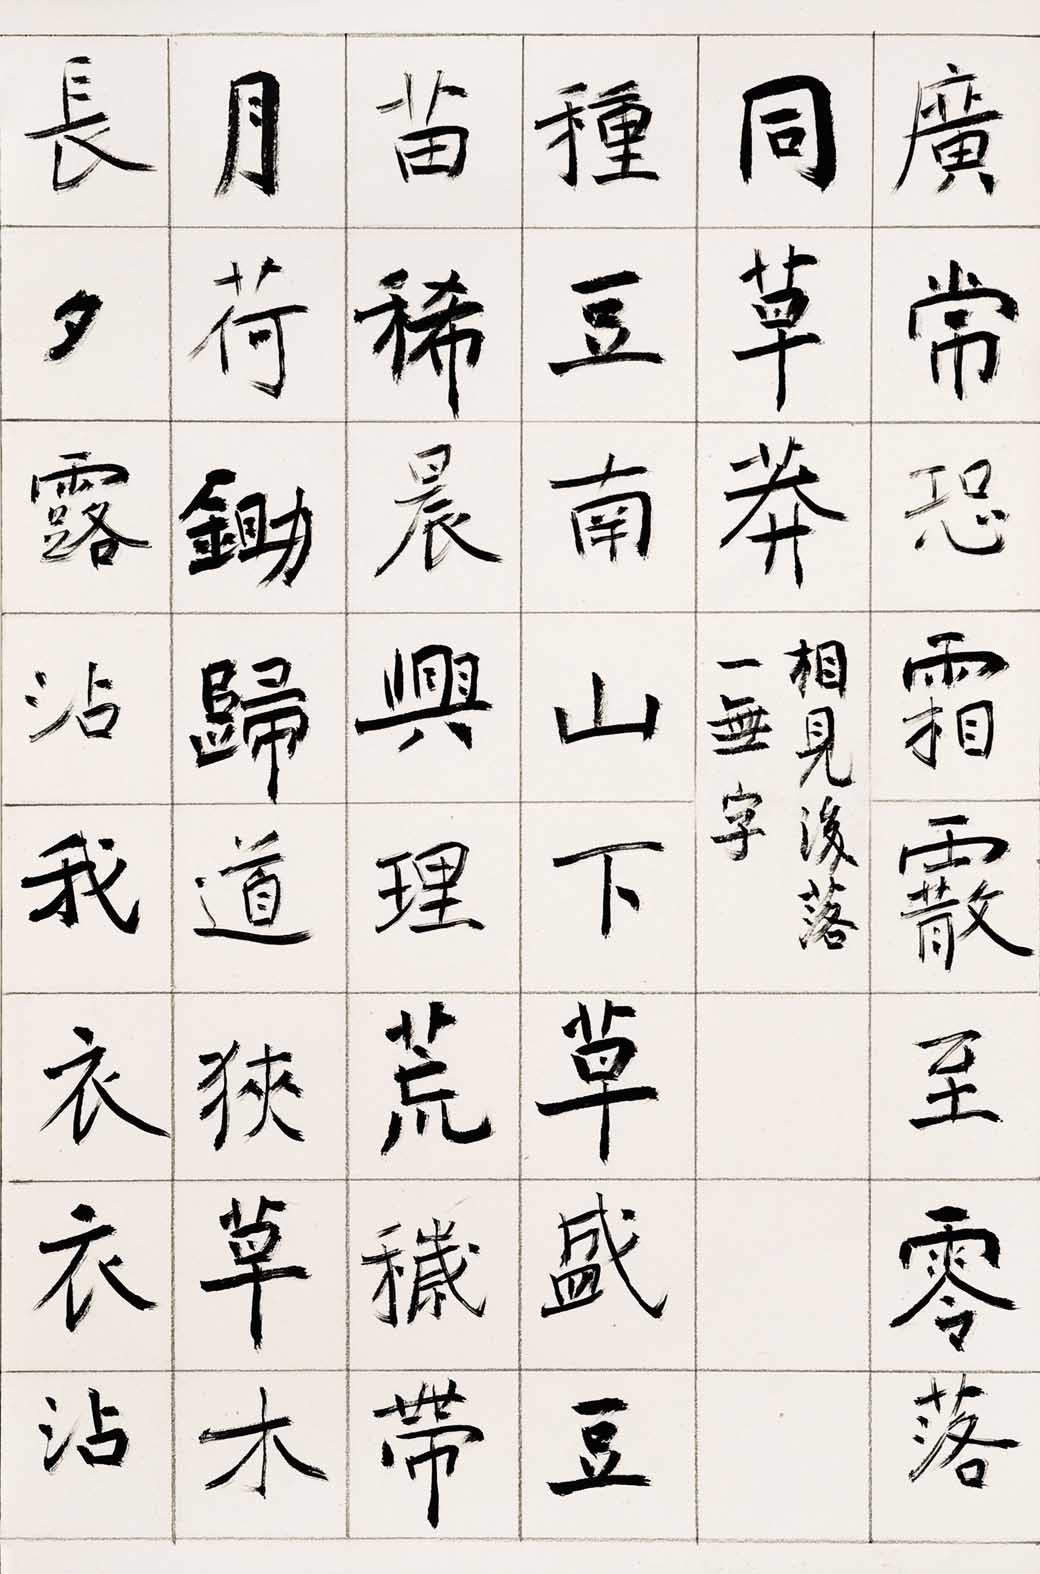 廣常恐霜霰至零落
同草莽
相見後落
一無字
種豆南山下草盛豆
苗稀晨興理荒穢帶
月荷鋤歸道狹草木
長夕露沾我衣衣沾